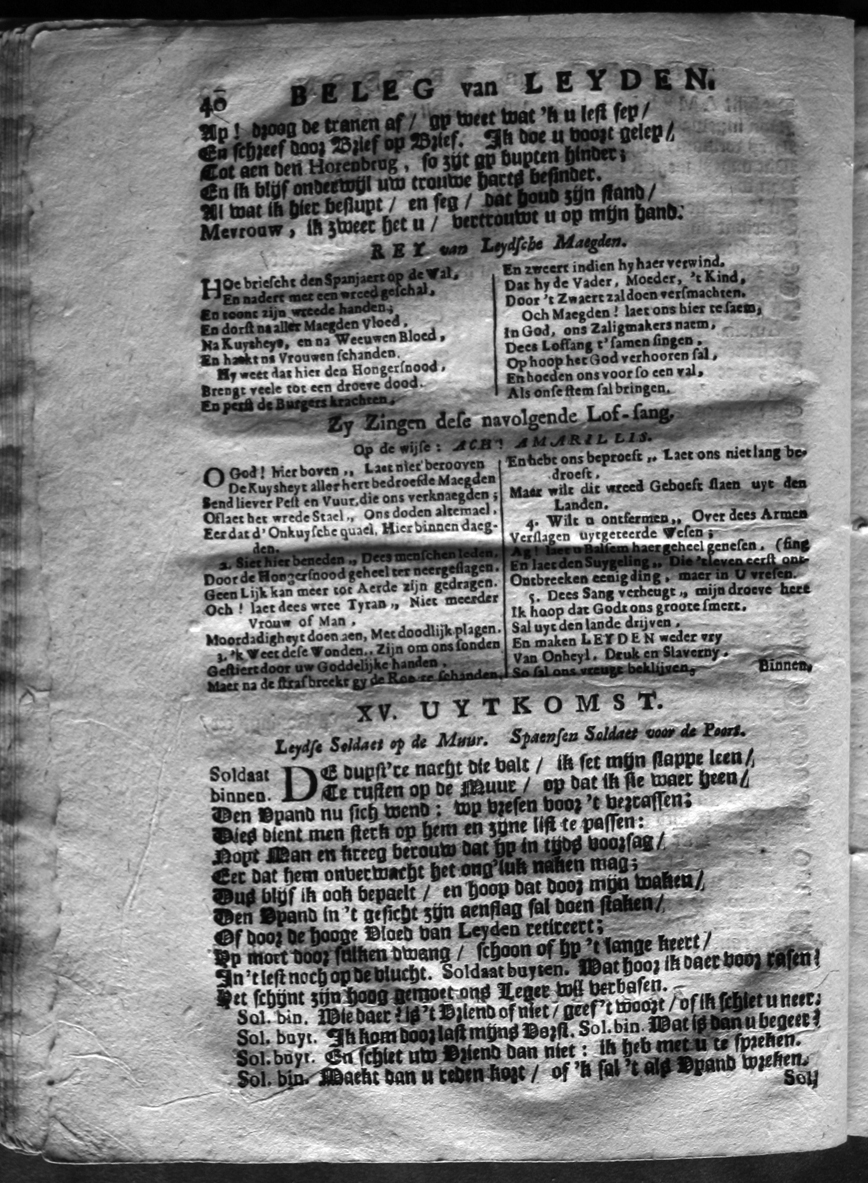 40 BELEG van LEYDEN.
Ay! droog de tranen af / gy weet wat 'k u lest sey /
En schreef door Brief op Brief. Ik doe u voort geley /
Tot aen den Horenbrug, so zijt gy buyten hinder;
En ik blijf onderwijl uw trouwe harts besinder.
Al wat ik hier besluyt / en seg / dat houd zijn stand /
Mevrouw, ik zweer het u / vertrouwt u op mijn hand.
REY van Leydsche Maegden.
HOe briescht den Spanjaert op de Wal,
En nadert met een wreed geschal,
En toont zijn wreede handen,
En dorst na aller Maegden Vloed,
Na Kuysheyt, en na Weeuwen Bloed,
En haakt na Vrouwen schanden.
Hy weet dat hier den Hongersnood,
Brengt veele tot een droeve dood.
En perst de Burgers krachten,
En zweert indien hy haer verwind.
Dat hy de Vader, Moeder, 't Kind,
Door 't Zwaert zal doen versmachten.
Och Maegden! laet ons hier te saem,
In God, ons Zaligmakers naem,
Dees Loffang t'samen singen,
Op hoop het God verhooren sal,
En hoeden ons voor so een val,
Als onse stem sal bringen.
Zy Zingen dese navolgende Lof-sang,
Op de wijse: ACH! AMARILLIS.
O God! hier boven,, Laet niet berooven
De Kuysheyt aller hert bedroefde Maegden
Send liever Pest en Vuur, die ons verknaegden;
Of laet het wrede Stael,, Ons doden altemael,
Eer dat d'Onkuysche quael, Hier binnen daeg-
den.
2. Siet hier beneden,, Dees menschen leden,
Door de Hongersnood geheel ter neergeslagen.
Geen Lijk kan meer tot Aerde zijn gedragen.
Och! laet dees wree Tyran,, Niet meerder
Vrouw of Man,
Moordadigheyt doen aen, Met doodlijk plagen.
3. 'k Weet dese Wonden,, Zijn om ons sonden
Gestiert door uw Goddelijke handen,
Maer na de straf breekt gy de Roe te schanden,
En hebt ons beproeft,, Laet ons niet lang be-
droeft,
Maar wilt dit wreed Geboeft slaen uyt den
Landen.
4. Wilt u ontfermen,, Over dees Armen
Verslagen uytgeteerde Wesen;
Ag! laet u Balsem haer geheel genesen. (sing
En laet den Suygeling,, Die 't leven eerst ont-
Ontbreeken eenig ding, maer in U vresen.
5. Dees Sang verheugt,, mijn droeve hert
Ik hoop dat Godt ons groote smert,
Sal uyt den lande drijven,
En maken LEYDEN weder vry
Van Onheyl, Druk en Slaverny,
So sal ons vreugt beklijven, Binnen,
XV. UYTKOMST.
Leydse Soldaet op de Muur. Spaensen Soldaet voor de Poort.
Soldaat DE duyst're nacht die valt / ik set mijn stappe leen /
binnen. Te rusten op de Muur / op dat ik sie waer heen /
Den Vyand nu sich wend: wy vresen voor 't verrassen;
Dies dient men sterk op hem en zijne list te passen:
Noyt Man en kreeg berouw dat hy in tijds voorsag /
Eer dat hem onverwacht het ong'luk naken mag;
Dus blijf ik ook bepaelt / en hoop dat door mijn waken /
Den Vyand in 't gesicht zijn aenslag sal doen staken /
Of door de hooge Vloed van Leyden retireert;
Hy mort door sulken dwang / schoon of hy 't lange keert /
In 't lest noch op de vlucht. Soldaat buyten. Wat hoor ik daer voor rasen!
Het schijnt zijn hoog gemoet ons Leger wil verbasen.
Sol. bin. Wie daer! is 't Vriend of niet / geef 't woort / of ik schiet u neer:
Sol. buyt. Ik kom door last mijns Vorst. Sol. bin. Wat is dan u begeer?
Sol. buyt. En schiet uw Vriend dan niet: ik heb met u te spreken.
Sol. bin. Maekt dan u reden kort / of 'k sal 't als Vyand wreken.
Sol